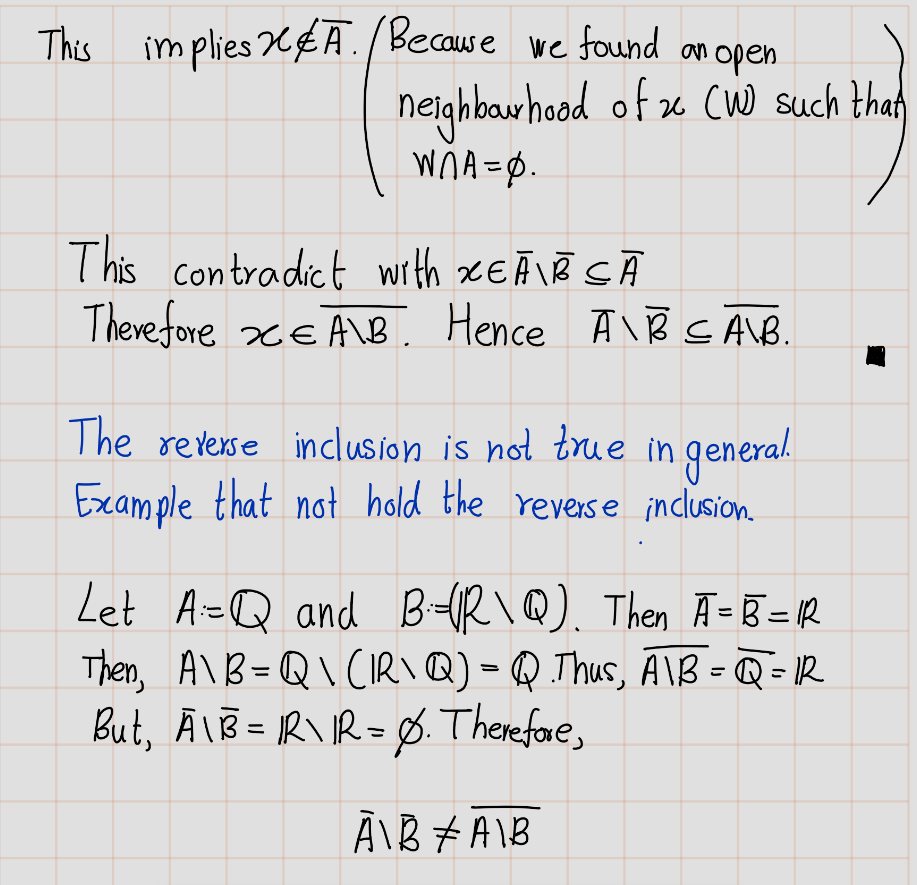 This implies x∉A̅. (Because we found an open
neighbourhood of x (W) such that
W∩A=∅.)
This contradict with x∈A̅\B̅ ⊆ A̅
Therefore x∈ \overline{A\B}. Hence A̅\B̅ ⊆ \overline{A\B}. ■
The reverse inclusion is not true in general.
Example that not hold the reverse inclusion.
Let A:=ℚ and B:=(ℝ\ℚ). Then A̅=B̅=ℝ
Then, A\B=ℚ\(ℝ\ℚ)=ℚ. Thus, \overline{A\B}=\overline{ℚ}=ℝ
But, A̅\B̅=ℝ\ℝ=∅. Therefore,
A̅\B̅ ≠ \overline{A\B}